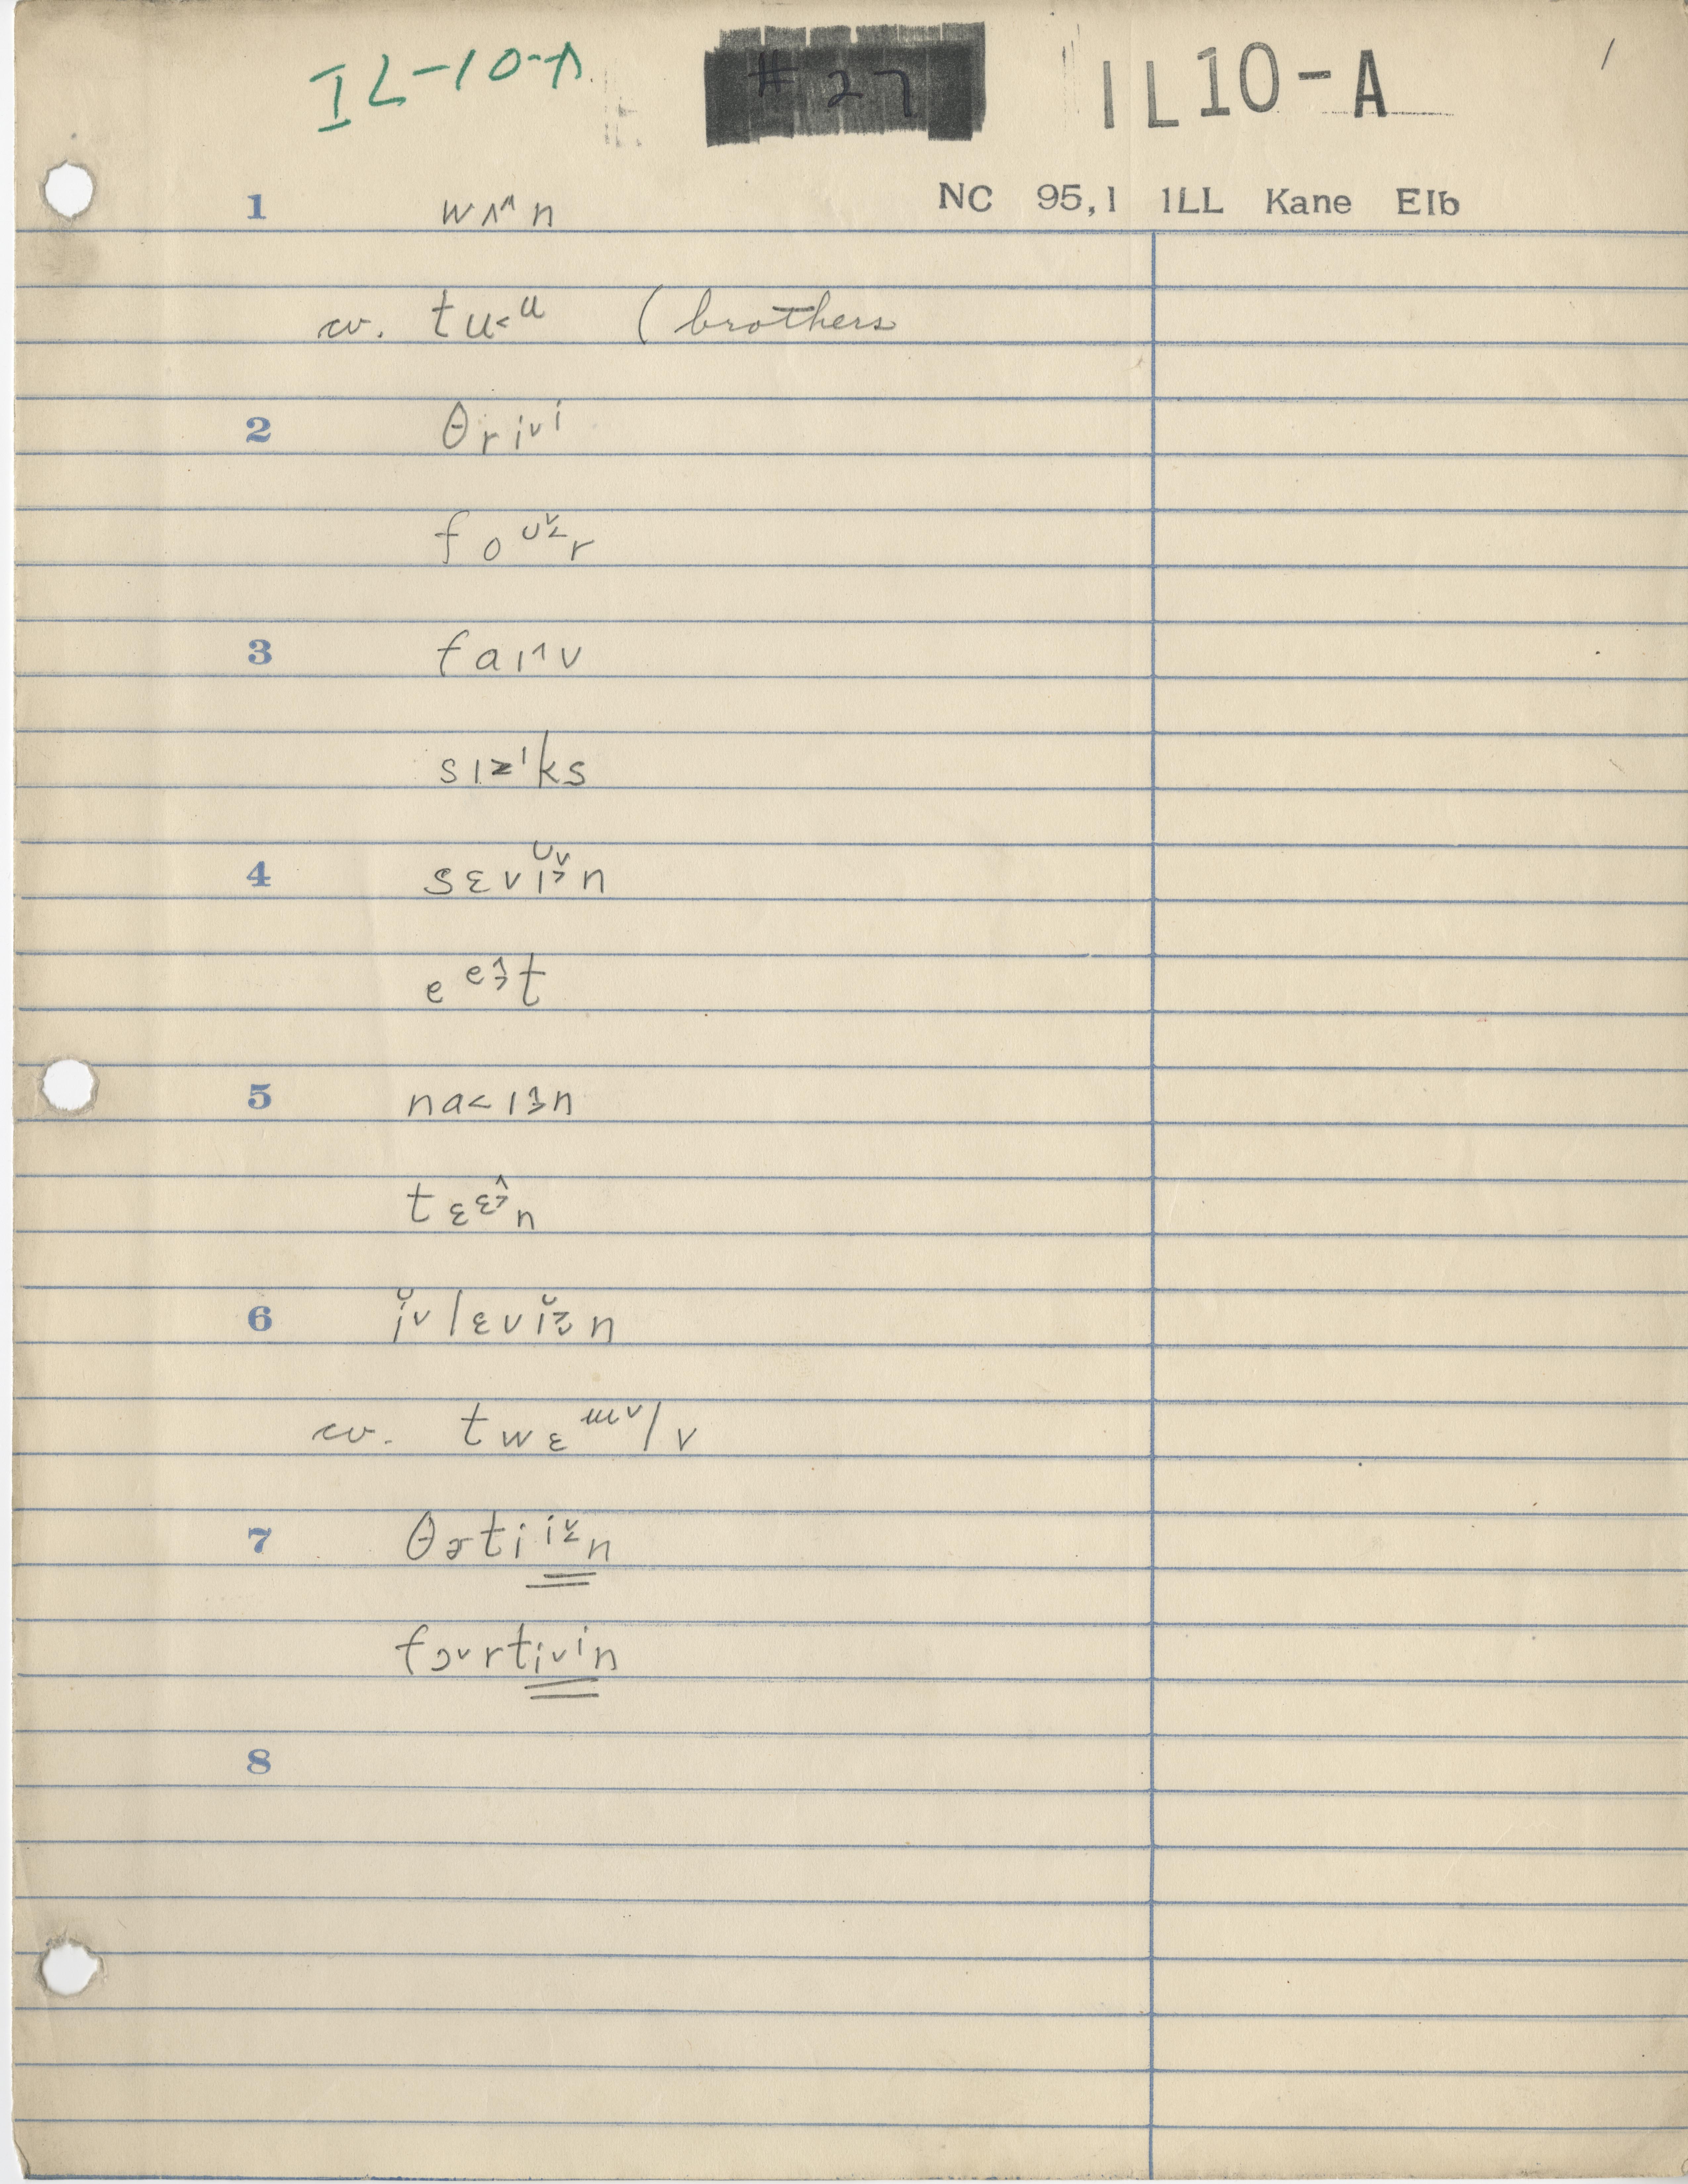 IL-10-A #27 IL10-A 1
NC 95,1 ILL Kane Elb
1 wʌ^ʌn
cv. tu˂ᵘ (brothers
2 θri˅ⁱ
foᵁ˅˂r
3 faɪ^v
sɪ˃ᶦks
4 sɛvɪ̆˅˃n
eᵉ^˃t
5 na˂ɪ^˃n
tɛᵋ^˃n
6 ĭ˅lɛvɪ̆˃˅n
cv. twɛ ˅lv
7 θɚtiⁱ˅˂n
fɔ˅rti˅ⁱn
8